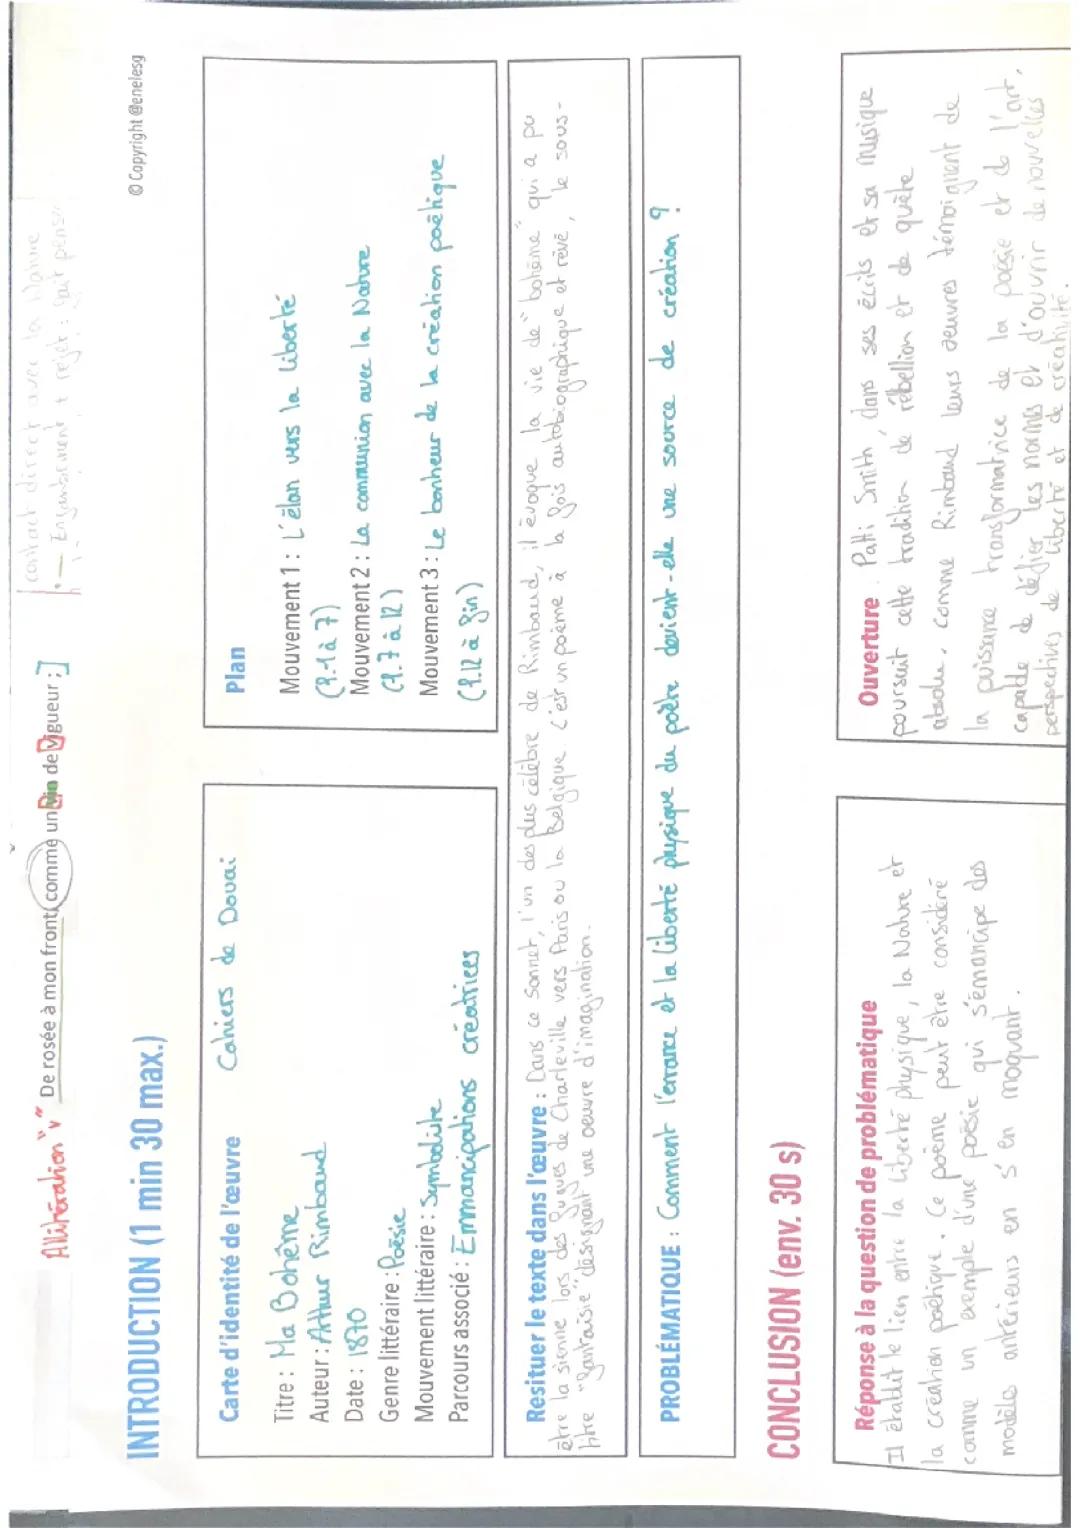 contact direct avec la Nature
Alliteration "v" De rosée à mon front, comme un vin de vigueur ;]
Enjambement + rejet :
INTRODUCTION (1 min 30 max.)
© Copyright @enelesg
Carte d'identité de l'œuvre Cahiers de Douai
Titre : Ma Bohême
Auteur : Arthur Rimbaud
Date : 1870
Genre littéraire : Poësie
Mouvement littéraire : Symboliste
Parcours associé : Emmancipations créatrices
Plan
Mouvement 1 : L'élan vers la liberté
(l.1 à 7)
Mouvement 2 : La communion avec la Nature
(l.7 à 12)
Mouvement 3 : Le bonheur de la création poétique
(l.12 à fin)
Resituer le texte dans l'œuvre : Dans ce sonnet, l'un des plus célèbre de Rimbaud, il évoque la vie de "bohème" qui a pu
être la sienne lors des fugues de Charleville vers Paris ou la Belgique. C'est un poème à la fois autobiographique et rêvé, le sous-
titre "fantaisie" désignant une oeuvre d'imagination.
PROBLÉMATIQUE : Comment l'errance et la liberté physique du poète devient-elle une source de création ?
CONCLUSION (env. 30 s)
Réponse à la question de problématique
Il établit le lien entre la liberté physique, la Nature et
la création poétique. Ce poème peut être considéré
comme un exemple d'une poésie qui s'émancipe des
modèles antérieurs en s'en moquant.
Ouverture : Patti Smith, dans ses écrits et sa musique
poursuit cette tradition de rébellion et de quête
absolu, comme Rimbaud leurs oeuvres témoignent de
la puissance transformatrice de la poésie et de l'art,
capable de défier les normes et d'ouvrir de nouvelles
perspectives de liberté et de créativité.